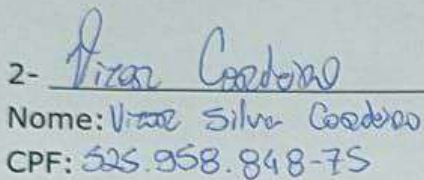 2- Vitor Cordeiro
Nome: Vitor Silva Cordeiro
CPF: 525.958.848-75